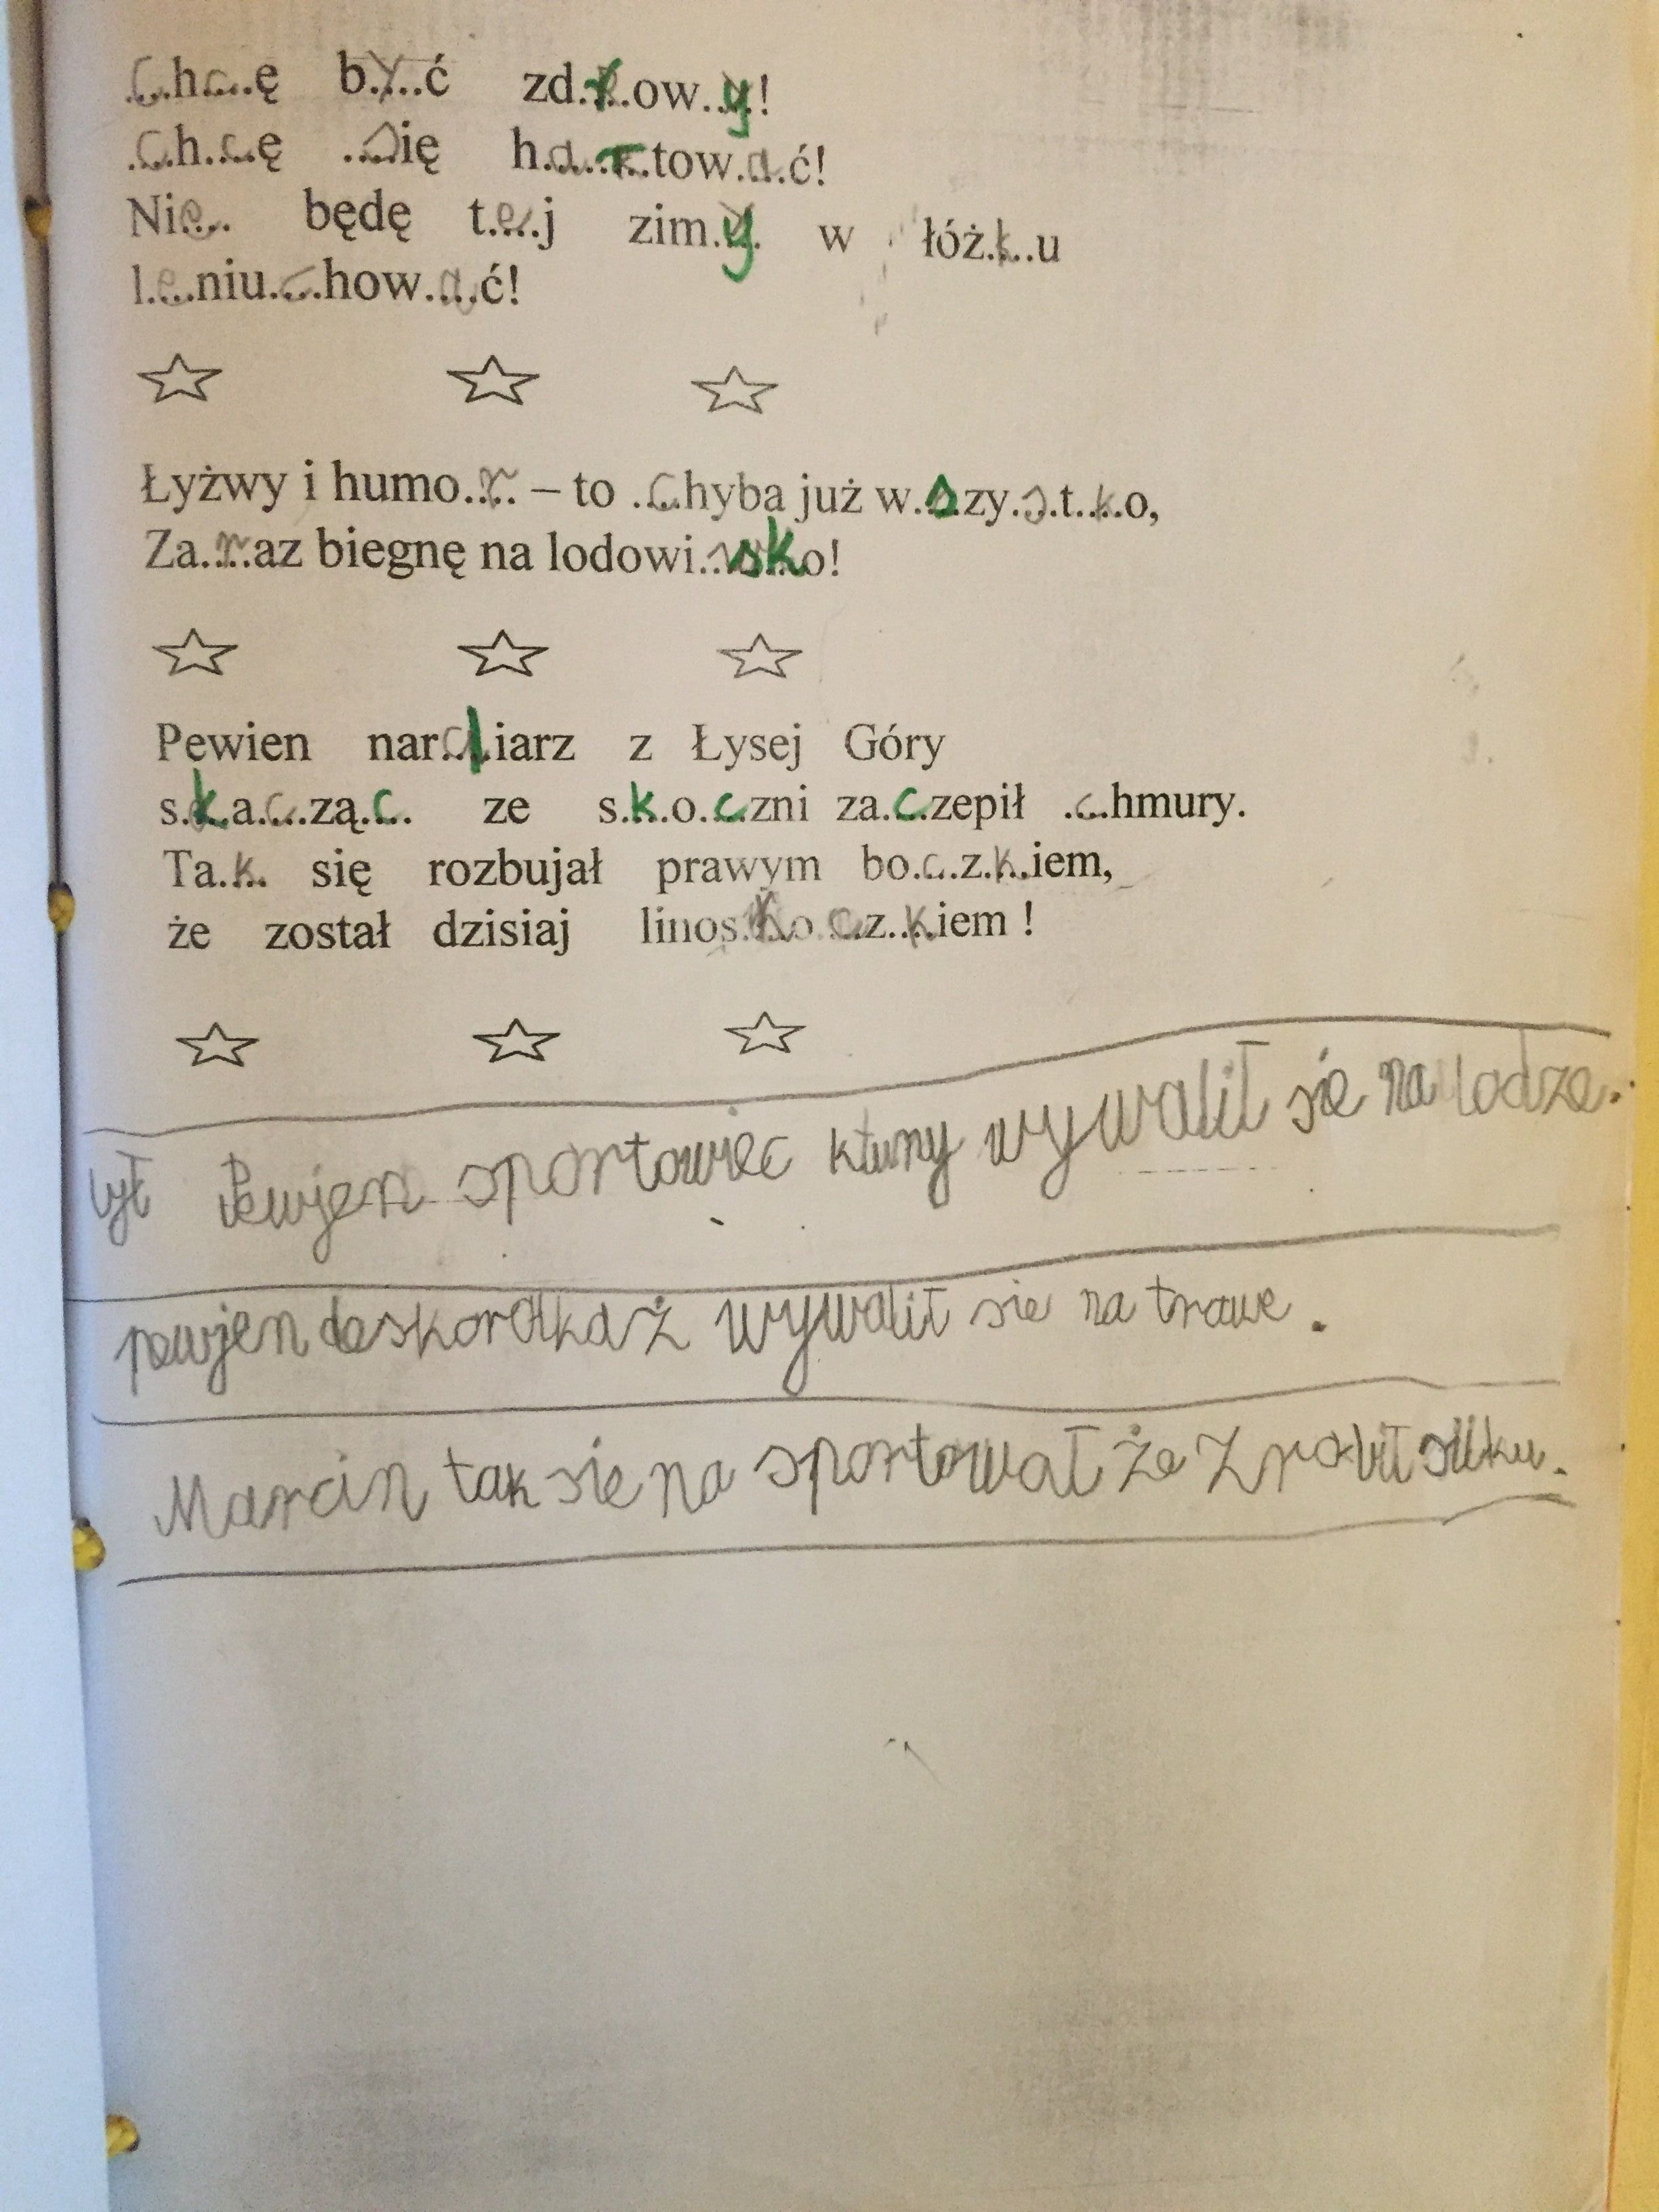 Chcę być zdrowy!
Chcę się hartować!
Nie będę tej zimy w łóżku
leniuchować!
Łyżwy i humor – to chyba już wszystko,
Zaraz biegnę na lodowisko!
Pewien narciarz z Łysej Góry
skacząc ze skoczni zaczepił chmury.
Tak się rozbujał prawym boczkiem,
że został dzisiaj linoskoczkiem!
był Pewjen sportowiec ktury wywalił sie na lodze.
pewjen deskorolkaż wywalił sie na trawe.
Marcin tak sie na sportował że zrobił siłku.